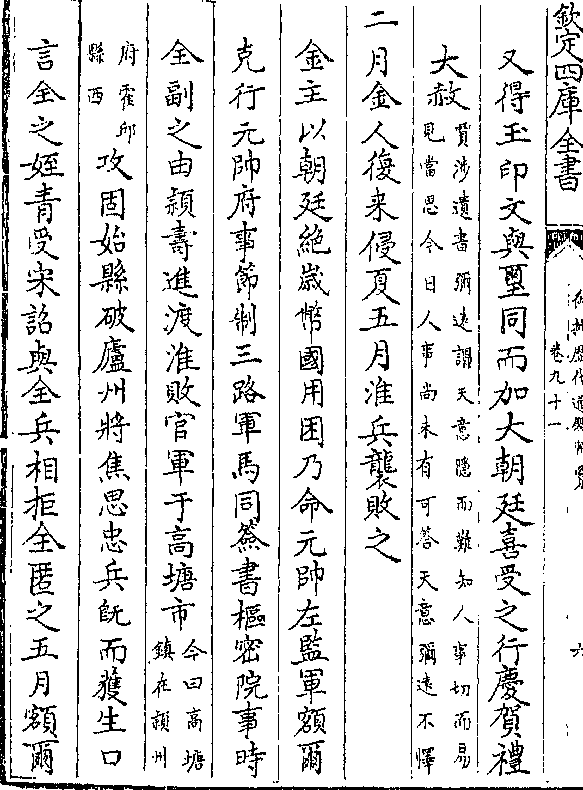 欽定四庫全書
御批歷代通鑑輯覽
卷九十一
六
又得玉印文與璽同而加大朝廷喜受之行慶賀禮
大赦賈涉遺書彌遠謂天意隱而難知人事切而易
見當思今日人事尚未有可答天意彌遠不懌
二月金人復来侵夏五月淮兵襲敗之
金主以朝廷絶歲幣國用困乃命元帥左監軍額爾
克行元帥府事節制三路軍馬同簽書樞密院事時
全副之由頴壽進渡淮敗官軍于高塘市今曰高塘
鎮在頴州
府霍邱
縣西攻固始縣破廬州將焦思忠兵旣而獲生口
言全之姪青受宋詔與全兵相拒全匿之五月額爾